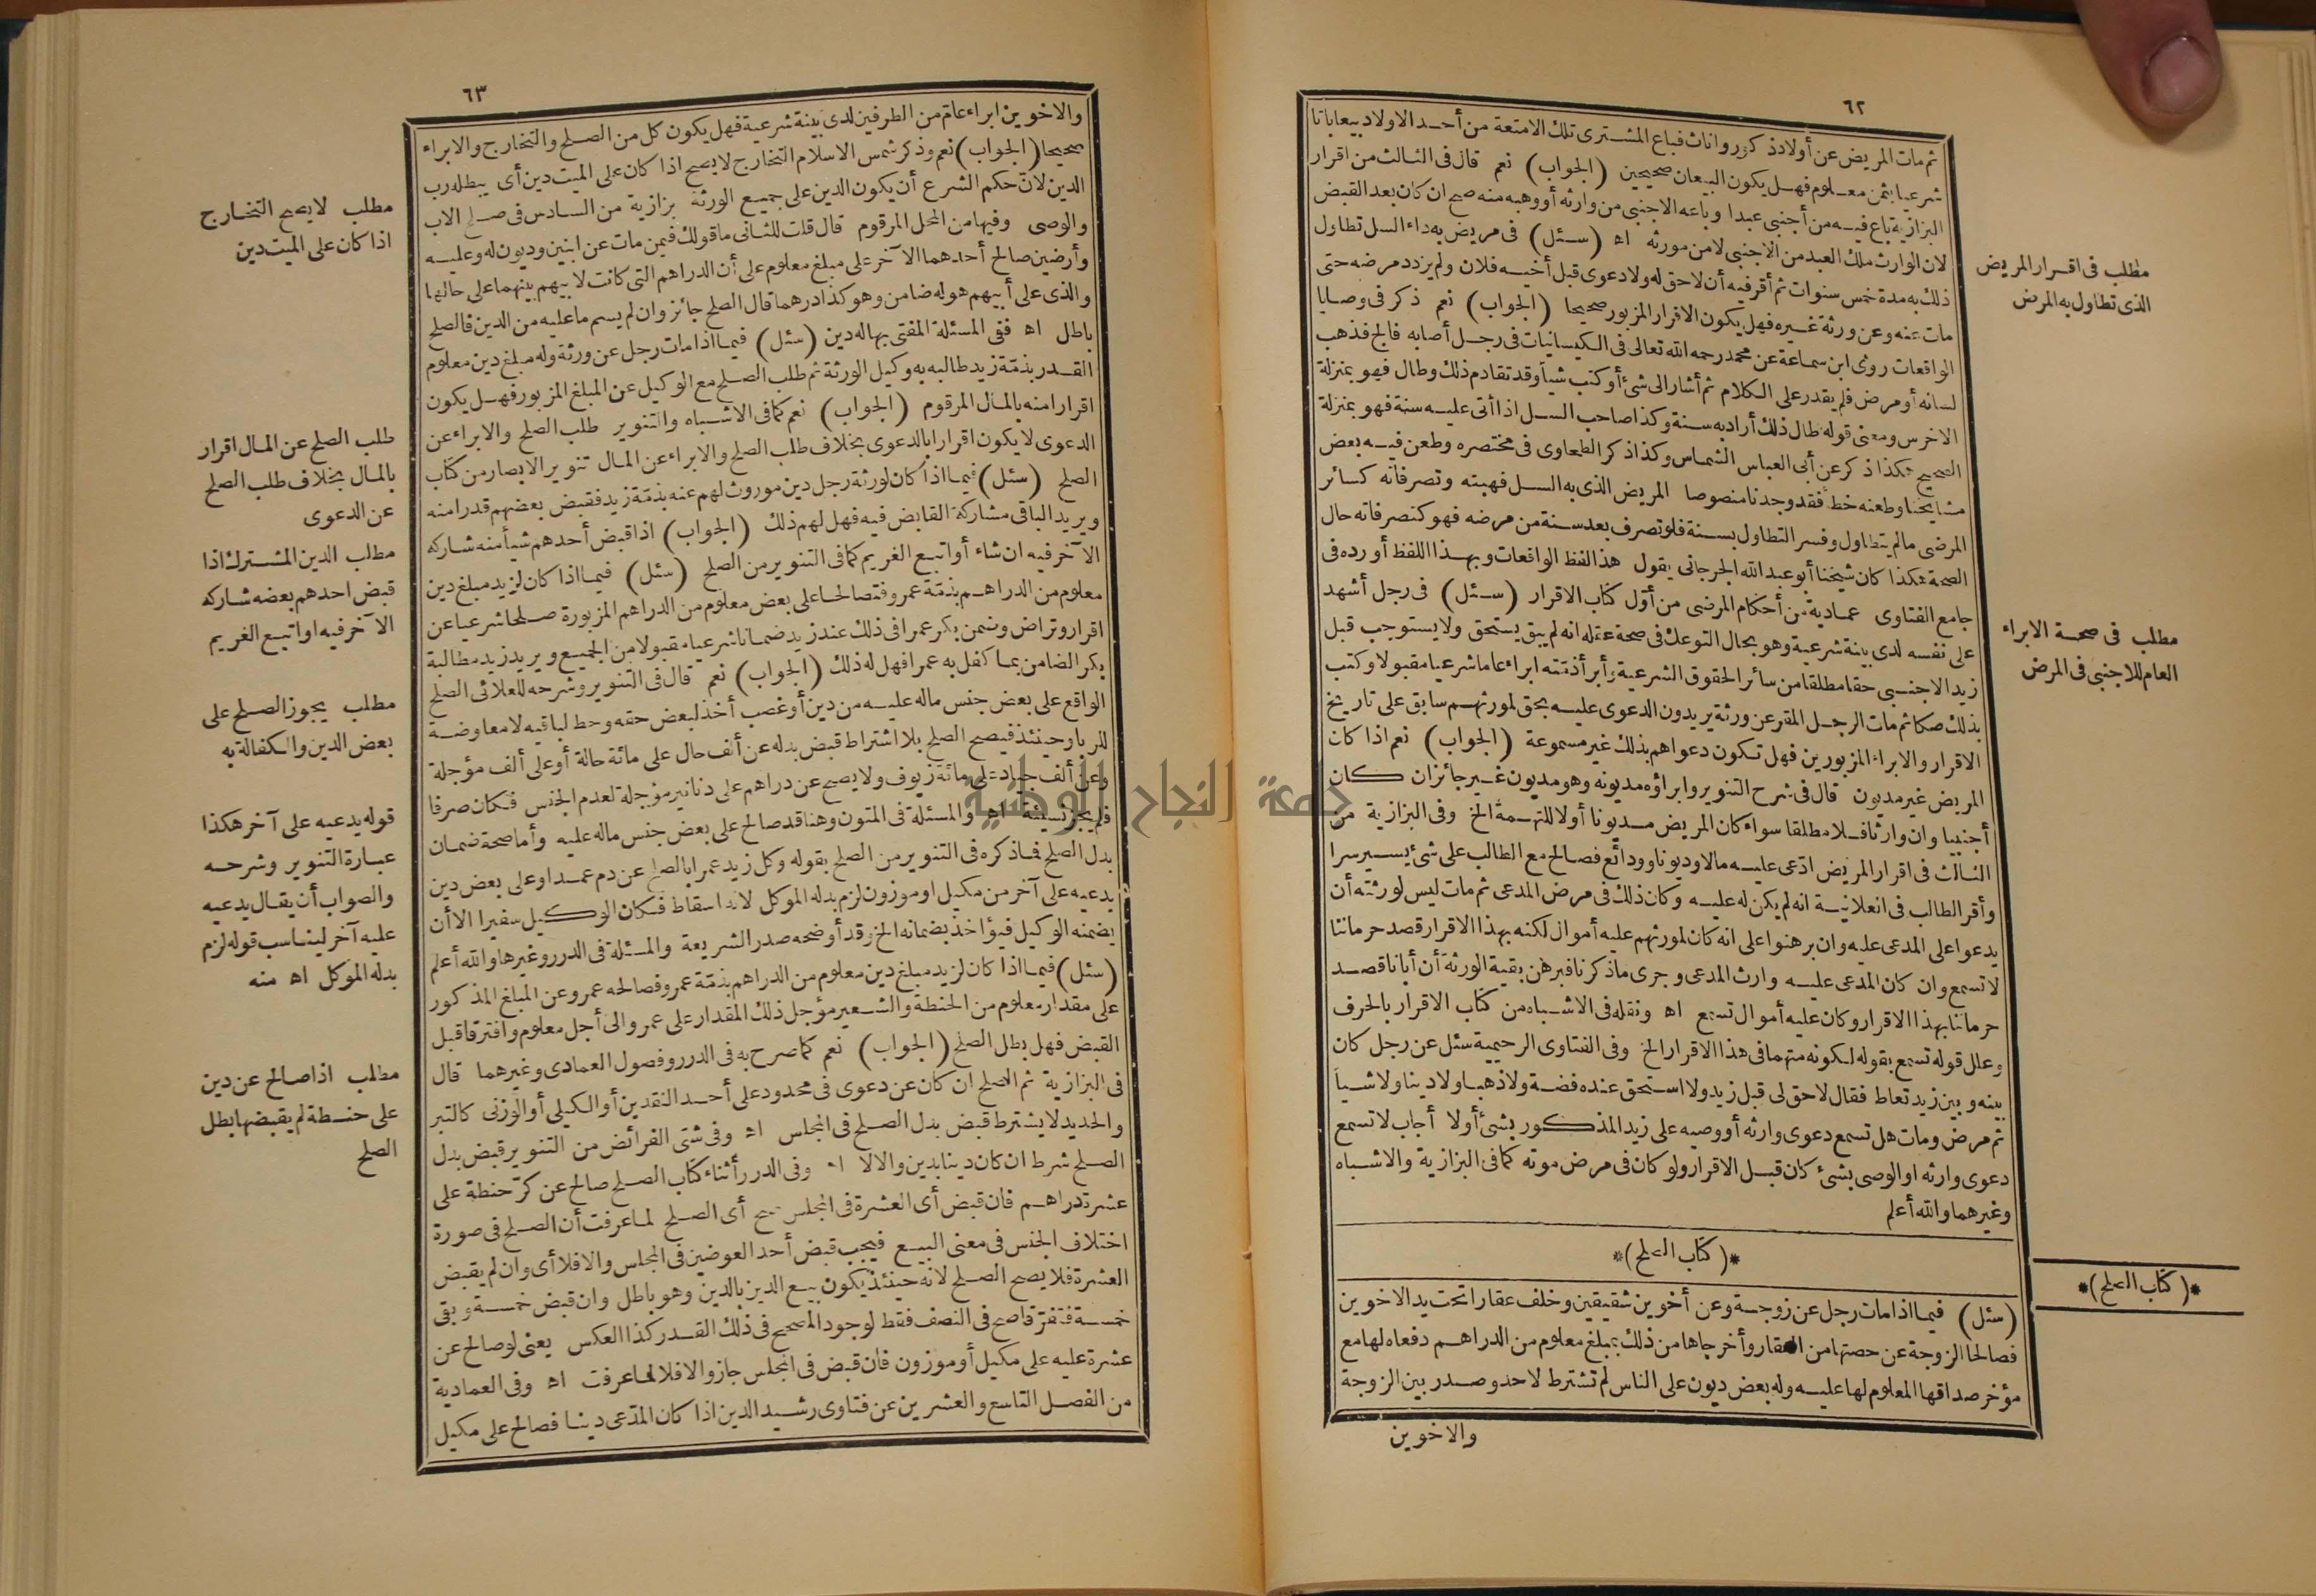 ٦٢
ثم مات المريض عن أولاد ذكور واناث فباع المشترى تلك الامتعة من أحد الاولاد بيعا باتا
شرعيا بثمن معلوم فهل يكون البيعان صحيحين (الجواب) نعم قال فى الثالث من اقرار
البزازية باع فيه من أجنبى عبدا وباعه الاجنبى من وارثه أو وهبه منه صح ان كان بعد القبض
لان الوارث ملك العبد من الاجنبى لا من مورثه اه (سئل) فى مريض به داء السل تطاول
ذلك به مدة خمس سنوات ثم أقر فيه أن لا حق له ولا دعوى قبل أخيه فلان ولم يزدد مرضه حتى
مات عنه وعن ورثة غيره فهل يكون الاقرار المزبور صحيحا (الجواب) نعم ذكر فى وصايا
الواقعات روى ابن سماعة عن محمد رحمه الله تعالى فى الكيسانيات فى رجل أصابه فالج فذهب
لسانه أو مرض فلم يقدر على الكلام ثم أشار الى شئ أو كتب شيأ وقد تقادم ذلك وطال فهو بمنزلة
الاخرس ومعنى قوله طال ذلك أراد به سنة وكذا صاحب السل اذا أتى عليه سنة فهو بمنزلة
الصحيح هكذا ذكر عن أبى العباس الشماس وكذا ذكر الطحاوى فى مختصره وطعن فيه بعض
مشايخنا وطعنه خطأ فقد وجدنا منصوصا المريض الذى به السل فهبته وتصرفاته كسائر
المرضى ما لم يتطاول وفسر التطاول بسنة فلو تصرف بعد سنة من مرضه فهو كتصرفاته حال
الصحة هكذا كان شيخنا أبو عبد الله الجرجانى يقول هذا لفظ الواقعات وبهذا اللفظ أورده فى
جامع الفتاوى عمادية من أحكام المرضى من أول كتاب الاقرار (سئل) فى رجل أشهد
على نفسه لدى بينة شرعية وهو بحال التوعك فى صحة عقله انه لم يبق يستحق ولا يستوجب قبل
زيد الاجنبى حقا مطلقا من سائر الحقوق الشرعية وأبرأ ذمته ابراء عاما شرعيا مقبولا وكتب
بذلك صكا ثم مات الرجل المقر عن ورثة يريدون الدعوى عليه بحق لمورثهم سابق على تاريخ
الاقرار والابراء المزبورين فهل تكون دعواهم بذلك غير مسموعة (الجواب) نعم اذا كان
المريض غير مديون قال فى شرح التنوير وابراؤه مديونه وهو مديون غير جائز ان كان
أجنبيا وان وارثا فلا مطلقا سواء كان المريض مديونا أولا للتهمة الخ وفى البزازية من
الثالث فى اقرار المريض ادعى عليه مالا وديونا وودائع فصالح مع الطالب على شئ يسير سرا
وأقر الطالب فى العلانية انه لم يكن له عليه وكان ذلك فى مرض المدعى ثم مات ليس لورثته أن
يدعوا على المدعى عليه وان برهنوا على انه كان لمورثهم عليه أموال لكنه بهذا الاقرار قصد حرماننا
لا تسمع وان كان المدعى عليه وارث المدعى وجرى ما ذكرنا فبرهن بقية الورثة أن أبانا قصد
حرماننا بهذا الاقرار وكان عليه أموال تسمع اه ونقله فى الاشباه من كتاب الاقرار بالحرف
وعلل قوله تسمع بقوله لكونه متهما فى هذا الاقرار الخ وفى الفتاوى الرحيمية سئل عن رجل كان
بينه وبين زيد تعاط فقال لا حق لى قبل زيد ولا استحق عنده فضة ولا ذهبا ولا دينا ولا شيأ
ثم مرض ومات هل تسمع دعوى وارثه أو وصيه على زيد المذكور بشئ أولا أجاب لا تسمع
دعوى وارثه او الوصى بشئ كان قبل الاقرار ولو كان فى مرض موته كما فى البزازية والاشباه
وغيرهما والله أعلم
*(كتاب الصلح)*
(سئل) فيما اذا مات رجل عن زوجة وعن أخوين شقيقين وخلف عقارا تحت يد الاخوين
فصالحا الزوجة عن حصتها من العقار وأخرجاها من ذلك بمبلغ معلوم من الدراهم دفعاه لها مع
مؤخر صداقها المعلوم لها عليه وله بعض ديون على الناس لم تشترط لاحد وصدر بين الزوجة
والاخوين
مطلب فى اقرار المريض
الذى تطاول به المرض
مطلب فى صحة الابراء
العام للاجنبى فى المرض
*(كتاب الصلح)*
٦٣
والاخوين ابراء عام من الطرفين لدى بينة شرعية فهل يكون كل من الصلح والتخارج والابراء
صحيحا (الجواب) نعم وذكر شمس الاسلام التخارج لا يصح اذا كان على الميت دين أى يبطله رب
الدين لان حكم الشرع أن يكون الدين على جميع الورثة بزازية من السادس فى صلح الاب
والوصى وفيها من المحل المرقوم قال قلت للثانى ما قولك فيمن مات عن ابنين وديون له وعليه
وأرضين صالح أحدهما الآخر على مبلغ معلوم على أن الدراهم التى كانت لابيهم بينهما على حالها
والذى على أبيهم هو له ضامن وهو كذا درهما قال الصلح جائز وان لم يسم ما عليه من الدين فالصلح
باطل اه ففى المسئلة المفتى بها له دين (سئل) فيما اذا مات رجل عن ورثة وله مبلغ دين معلوم
القدر بذمة زيد طالبه به وكيل الورثة ثم طلب الصلح مع الوكيل عن المبلغ المزبور فهل يكون
اقرارا منه بالمال المرقوم (الجواب) نعم كما فى الاشباه والتنوير طلب الصلح والابراء عن
الدعوى لا يكون اقرارا بالدعوى بخلاف طلب الصلح والابراء عن المال تنوير الابصار من كتاب
الصلح (سئل) فيما اذا كان لورثة رجل دين موروث لهم عنه بذمة زيد فقبض بعضهم قدرا منه
ويريد الباقى مشاركة القابض فيه فهل لهم ذلك (الجواب) اذا قبض أحدهم شيأ منه شاركه
الآخر فيه ان شاء أو اتبع الغريم كما فى التنوير من الصلح (سئل) فيما اذا كان لزيد مبلغ دين
معلوم من الدراهم بذمة عمرو فتصالحا على بعض معلوم من الدراهم المزبورة صلحا شرعيا عن
اقرار وتراض وضمن بكر عمرا فى ذلك عند زيد ضمانا شرعيا مقبولا من الجميع ويريد زيد مطالبة
بكر الضامن بما كفل به عمرا فهل له ذلك (الجواب) نعم قال فى التنوير وشرحه للعلائى الصلح
الواقع على بعض جنس ماله عليه من دين أو غصب أخذ لبعض حقه وحط لباقيه لا معاوضة
للربا وحينئذ فيصح الصلح بلا اشتراط قبض بدله عن ألف حال على مائة حالة أو على ألف مؤجلة
وعن ألف جياد على مائة زيوف ولا يصح عن دراهم على دنانير مؤجلة لعدم الجنس فكان صرفا
فلم يجز نسيئة اه والمسئلة فى المتون وهنا قد صالح على بعض جنس ماله عليه وأما صحة ضمان
بدل الصلح فما ذكره فى التنوير من الصلح بقوله وكل زيد عمرا بالصلح عن دم عمد او على بعض دين
يدعيه على آخر من مكيل او موزون لزم بدله الموكل لانه اسقاط فكان الوكيل سفيرا الا أن
يضمنه الوكيل فيؤاخذ بضمانه الخ وقد أوضحه صدر الشريعة والمسئلة فى الدرر وغيرها والله أعلم
(سئل) فيما اذا كان لزيد مبلغ دين معلوم من الدراهم بذمة عمرو فصالحه عمرو عن المبلغ المذكور
على مقدار معلوم من الحنطة والشعير مؤجل ذلك المقدار على عمرو الى أجل معلوم وافترقا قبل
القبض فهل بطل الصلح (الجواب) نعم كما صرح به فى الدرر وفصول العمادى وغيرهما قال
فى البزازية ثم الصلح ان كان عن دعوى فى محدود على أحد النقدين أو الكيلى أو الوزنى كالتبر
والحديد لا يشترط قبض بدل الصلح فى المجلس اه وفى شتى الفرائض من التنوير قبض بدل
الصلح شرط ان كان دينا بدين والا لا اه وفى الدرر أثناء كتاب الصلح صالح عن كر حنطة على
عشرة دراهم فان قبض أى العشرة فى المجلس صح أى الصلح لما عرفت أن الصلح فى صورة
اختلاف الجنس فى معنى البيع فيجب قبض أحد العوضين فى المجلس والا فلا أى وان لم يقبض
العشرة فلا يصح الصلح لانه حينئذ يكون بيع الدين بالدين وهو باطل وان قبض خمسة وبقى
خمسة فتفرقا صح فى النصف فقط لوجود المصحح فى ذلك القدر كذا العكس يعنى لو صالح عن
عشرة عليه على مكيل أو موزون فان قبض فى المجلس جاز والا فلا لما عرفت اه وفى العمادية
من الفصل التاسع والعشرين عن فتاوى رشيد الدين اذا كان المدعى دينا فصالح على مكيل
مطلب لا يصح التخارج
اذا كان على الميت دين
طلب الصلح عن المال اقرار
بالمال بخلاف طلب الصلح
عن الدعوى
مطلب الدين المشترك اذا
قبض احدهم بعضه شاركه
الآخر فيه او اتبع الغريم
مطلب يجوز الصلح على
بعض الدين والكفالة به
قوله يدعيه على آخر هكذا
عبارة التنوير وشرحه
والصواب أن يقال يدعيه
عليه آخر ليناسب قوله لزم
بدله الموكل اه منه
مطلب اذا صالح عن دين
على حنطة لم يقبضها بطل
الصلح
جامعة النجاح الوطنية